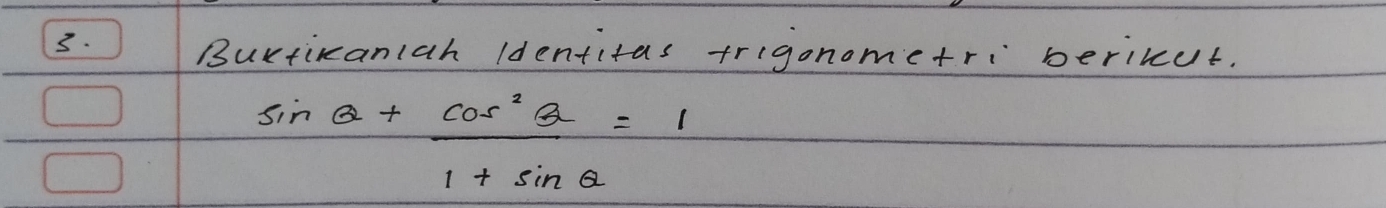 3. Buktikanlah Identitas trigonometri berikut.
sin θ + cos² θ = 1
1 + sin θ